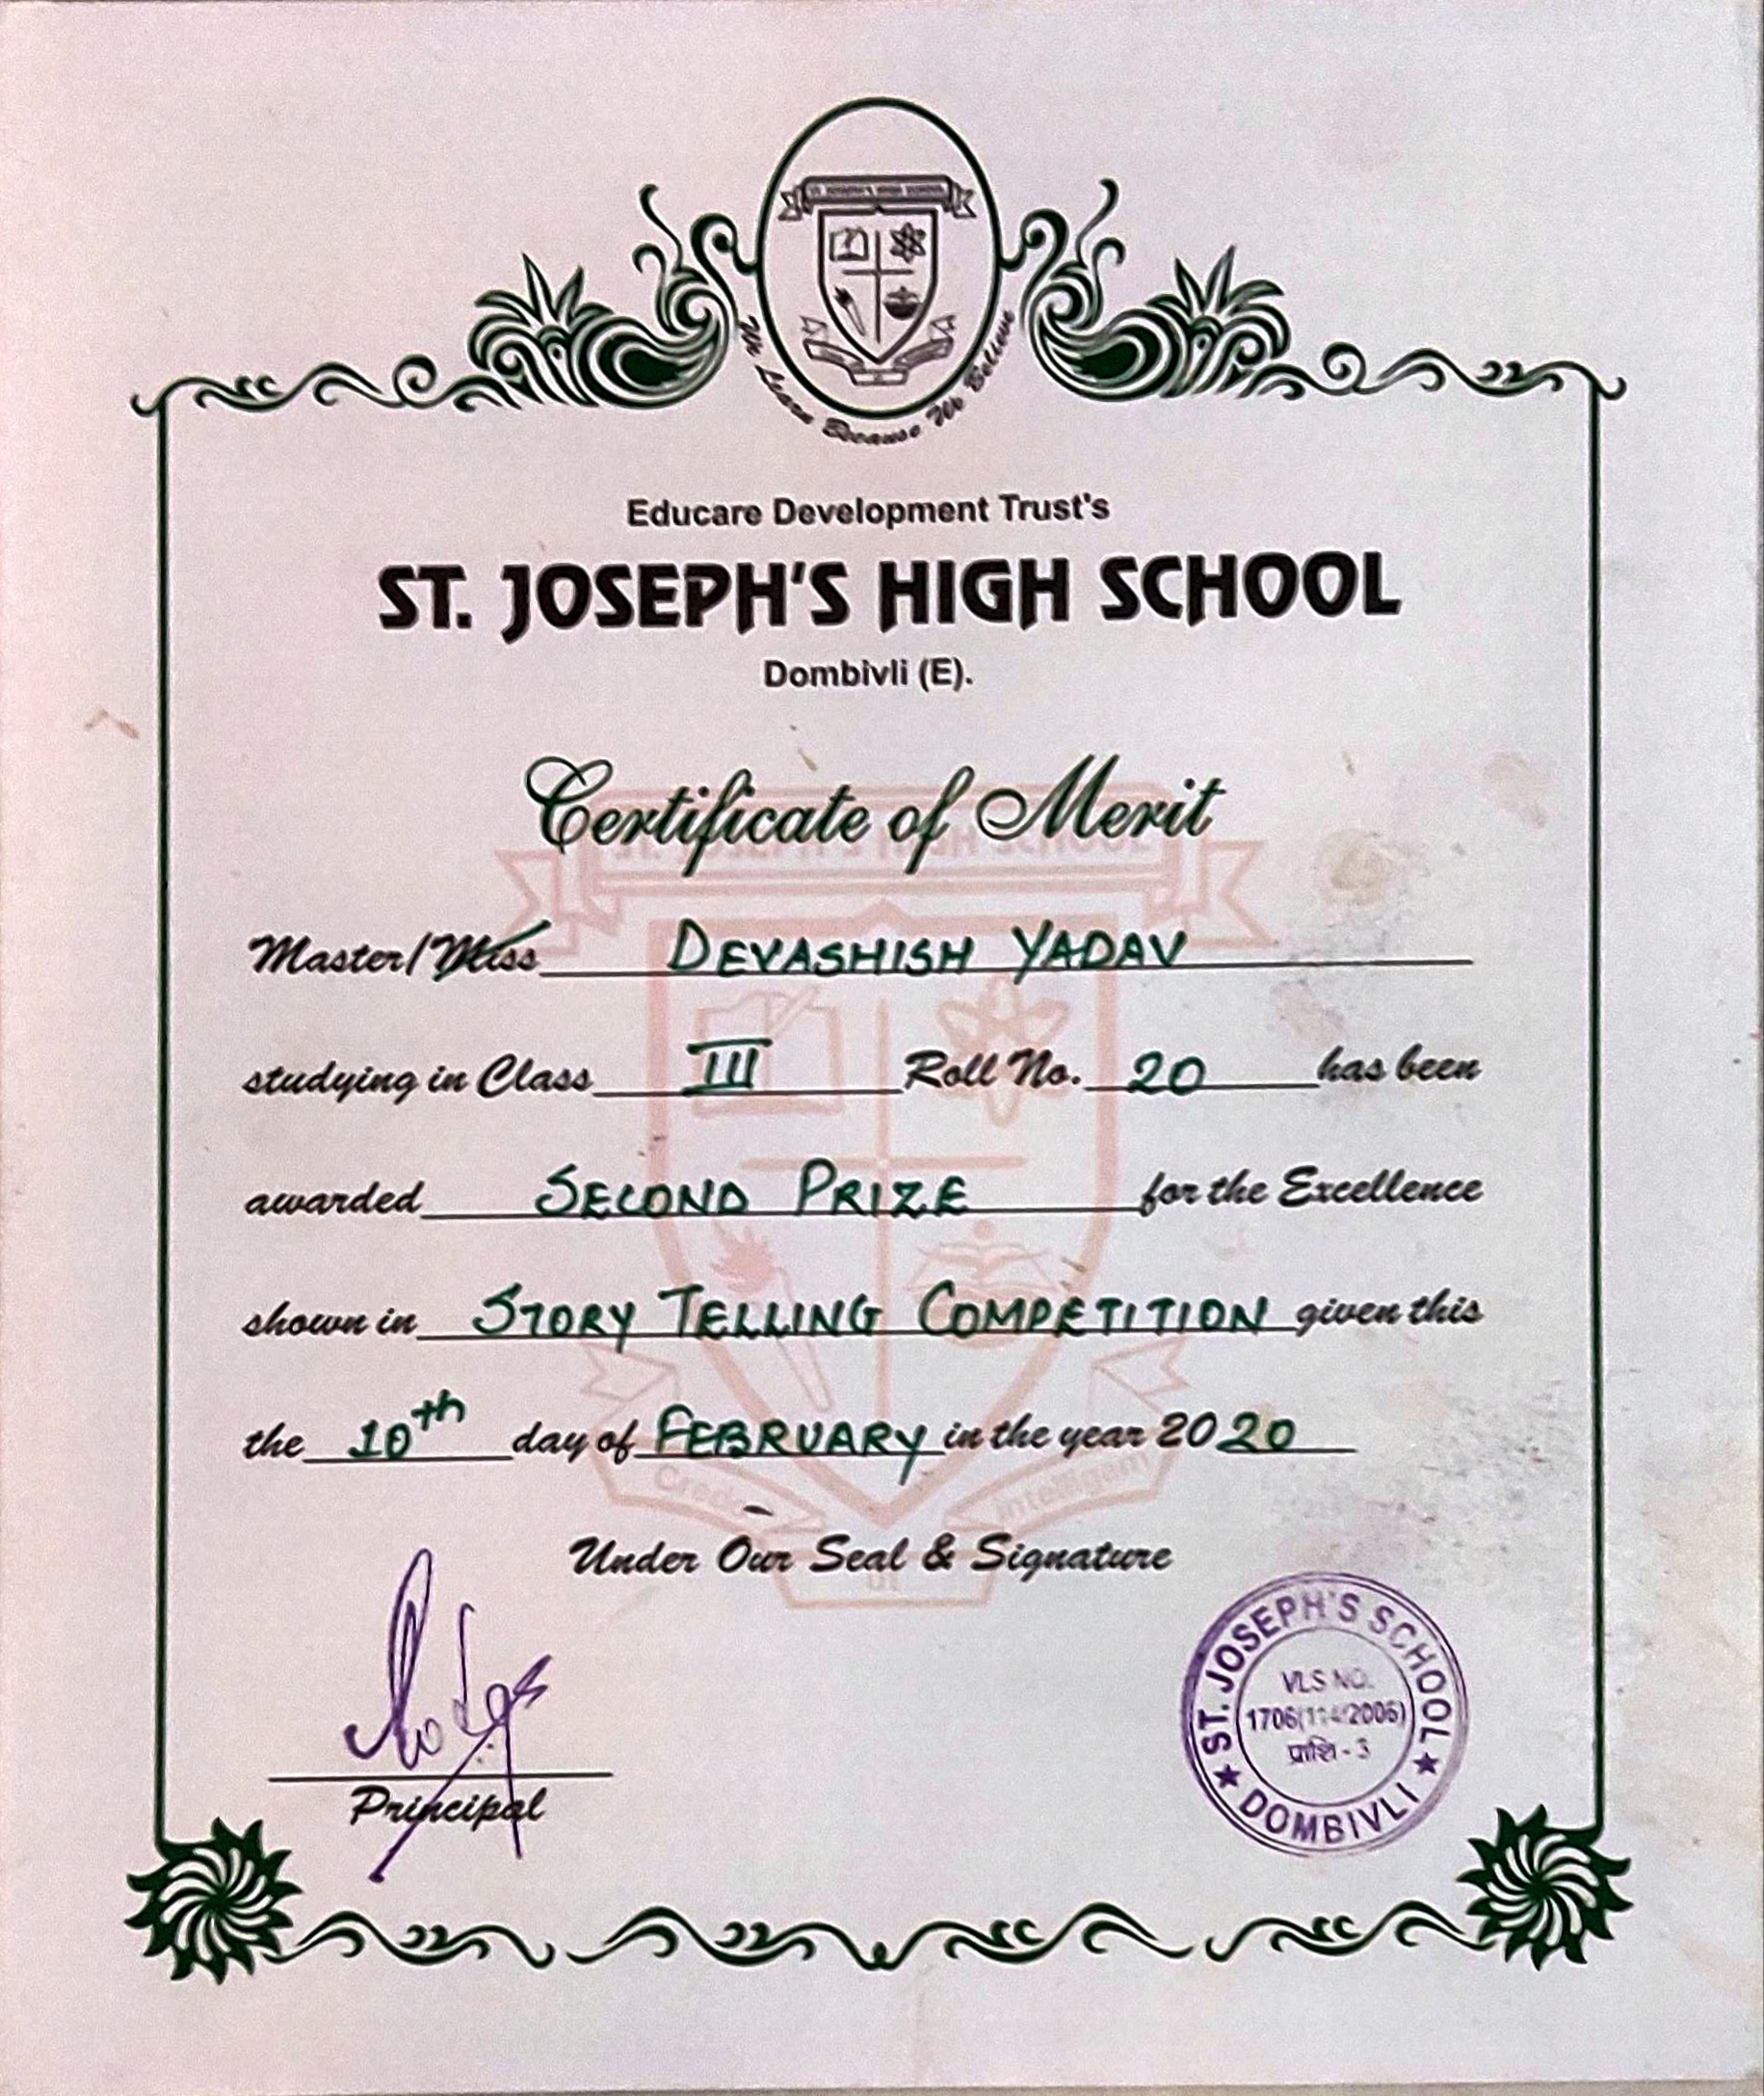 ST. JOSEPH'S HIGH SCHOOL
We Learn Because We Believe
Educare Development Trust's
ST. JOSEPH'S HIGH SCHOOL
Dombivli (E).
Certificate of Merit
Master/Miss DEVASHISH YADAV
studying in Class III Roll No. 20 has been
awarded SECOND PRIZE for the Excellence
shown in STORY TELLING COMPETITION given this
the 10th day of FEBRUARY in the year 2020
Under Our Seal & Signature
Principal
ST. JOSEPH'S SCHOOL
VLS NO.
1706(114/2006)
प्राशि - 3
★ DOMBIVLI ★